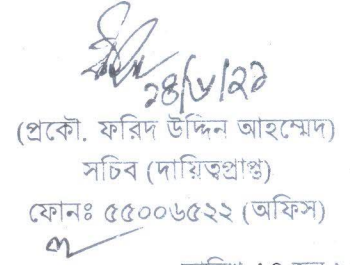 ১৪/৬/২১
(প্রকৌ. ফরিদ উদ্দিন আহম্মেদ)
সচিব (দায়িত্বপ্রাপ্ত)
ফোনঃ ৫৫০০৬৫২২ (অফিস)